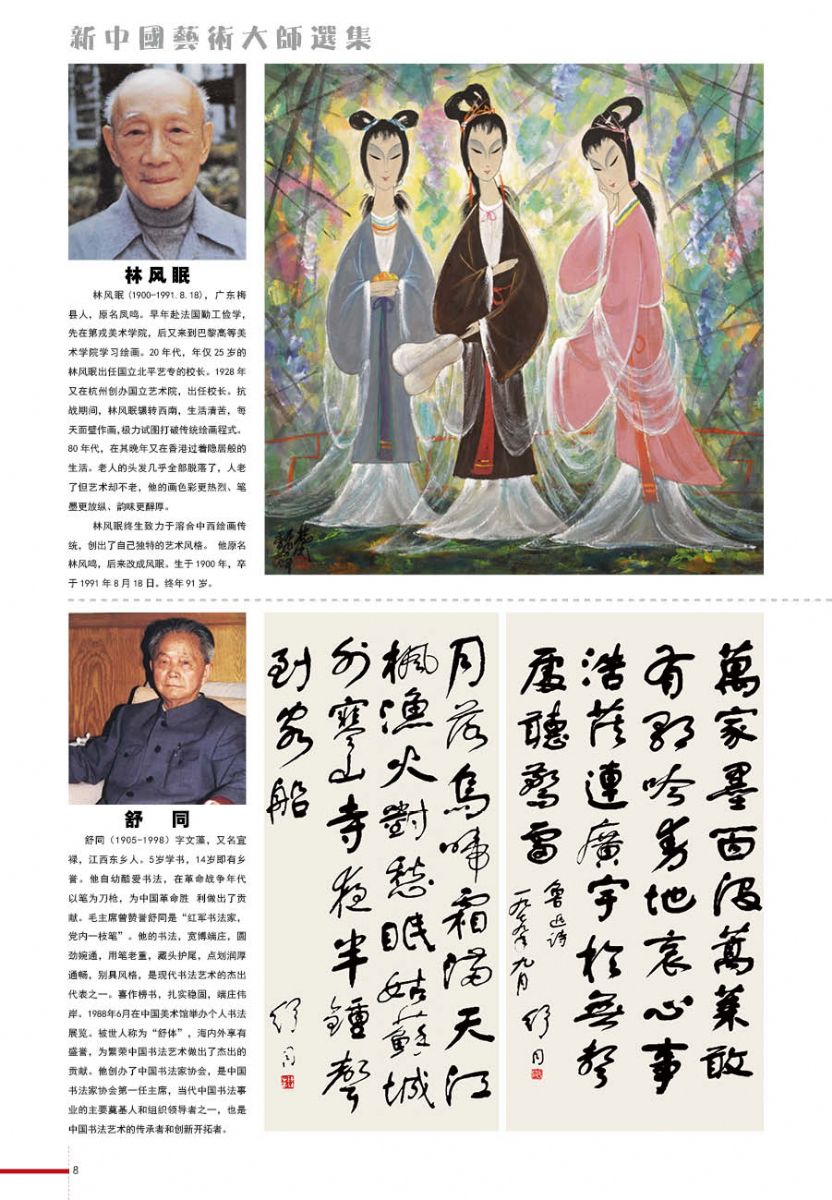 新中國藝術大師選集
林风眠
林风眠(1900-1991.8.18)，广东梅
县人，原名凤鸣。早年赴法国勤工俭学，
先在第戎美术学院，后又来到巴黎高等美
术学院学习绘画。20年代，年仅25岁的
林风眠出任国立北平艺专的校长。1928年
又在杭州创办国立艺术院，出任校长。抗
战期间，林风眠辗转西南，生活清苦，每
天面壁作画,极力试图打破传统绘画程式。
80年代，在其晚年又在香港过着隐居般的
生活。老人的头发几乎全部脱落了，人老
了但艺术却不老，他的画色彩更热烈、笔
墨更放纵、韵味更醇厚。
林风眠终生致力于溶合中西绘画传
统，创出了自己独特的艺术风格。 他原名
林凤鸣，后来改成风眠。生于1900年，卒
于1991年8月18日。终年91岁。
舒 同
舒同（1905-1998）字文藻，又名宜
禄，江西东乡人。5岁学书，14岁即有乡
誉。他自幼酷爱书法，在革命战争年代
以笔为刀枪，为中国革命胜 利做出了贡
献。毛主席曾赞誉舒同是“红军书法家，
党内一枝笔”。他的书法，宽博端庄，圆
劲婉通，用笔老重，藏头护尾，点划润厚
通畅，别具风格，是现代书法艺术的杰出
代表之一。喜作榜书，扎实稳固，端庄伟
岸。1988年6月在中国美术馆举办个人书法
展览。被世人称为“舒体”，海内外享有
盛誉，为繁荣中国书法艺术做出了杰出的
贡献。他创办了中国书法家协会，是中国
书法家协会第一任主席，当代中国书法事
业的主要奠基人和组织领导者之一，也是
中国书法艺术的传承者和创新开拓者。
萬家墨面没蒿莱敢
有歌吟動地哀心事
浩茫連廣宇於無聲
處聽驚雷
魯迅诗
一九七九年九月
舒同
月落烏啼霜滿天江
楓漁火對愁眠姑蘇城
外寒山寺夜半鐘聲
到客船
舒同
8